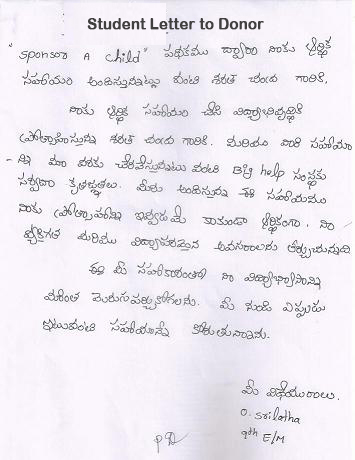 Student Letter to Donor
"Sponsor A child" పథకము ద్వారా నాకు ఆర్థిక
సహాయం అందిస్తున్నటు వంటి శరత్ చంద్ర గారికి,
నాకు ఆర్థిక సహాయం చేసి విద్యాభివృద్ధికి
ప్రోత్సాహిస్తున్న శరత్ చంద్ర గారికి. మరియు వారి సహాయా
- న్ని మా వరకు చేరవేస్తున్నటు వంటి help సంస్థకు
సర్వదా కృతజ్ఞతలు. మీరు అందిస్తున్న ఈ సహాయము
నాకు ప్రోత్సాహాన్ని ఇవ్వడమే కాకుండా ఆర్థికంగా, నా
వ్యక్తిగత మరియు విద్యాపరమైన అవసరాలను తీర్చుచున్నది
ఈ మీ సహకారంతో నా విద్యాభ్యాసాన్ని
మరింత మెరుగుపర్చుకోగలను. మీ నుండి ఎప్పుడు
ఇటువంటి సహాయాన్నే కోరుతున్నాను.
మీ విధేయురాలు.
O. Srilatha
9th E/M